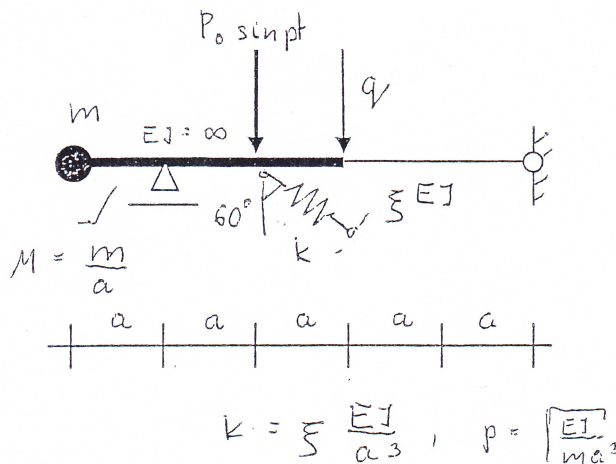 P₀ sin pt
m
q
EJ = ∞
60°
ξ EJ
k
M = m/a
a a a a a
k = ξ EJ/a³ , p = √EJ/ma³